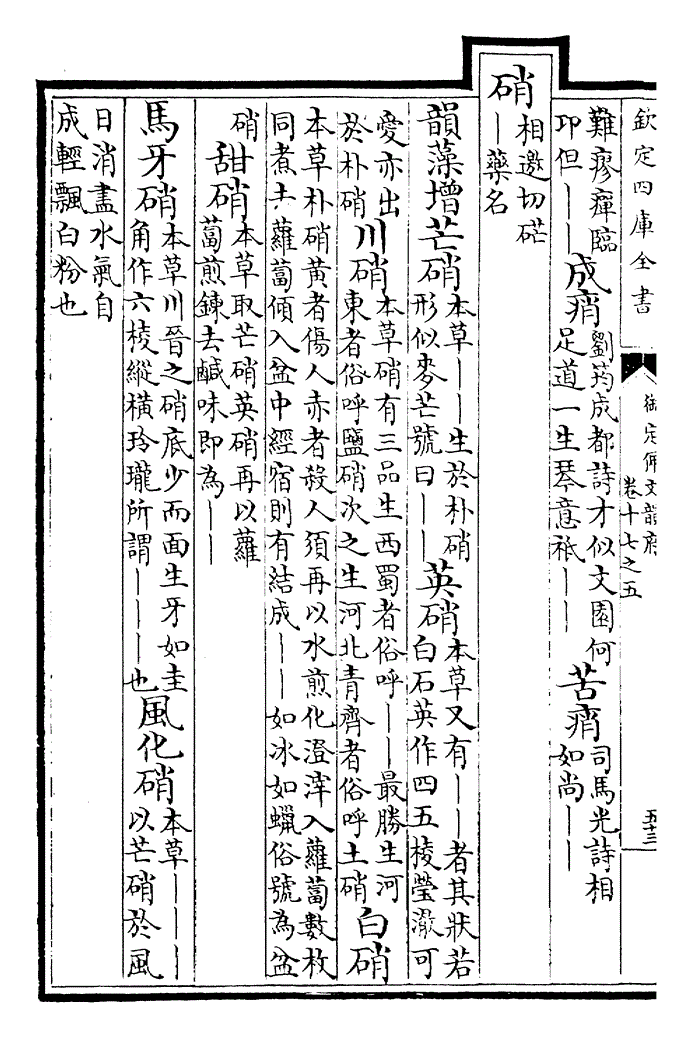 欽定四庫全書
御定佩文韻府
卷十七之五
五十三
難瘳癉臨
卭但丨丨
成痟
劉筠成都詩才似文園何
足道一生琴意秪丨丨
苦痟
司馬光詩相
如尚丨丨
硝
相邀切硭
丨藥名
韻藻增芒硝
本草丨丨生於朴硝
形似麥芒號曰丨丨
英硝
本草又有丨丨者其狀若
白石英作四五棱瑩澈可
愛亦出
於朴硝
川硝
本草硝有三品生西蜀者俗呼丨丨最勝生河
東者俗呼鹽硝次之生河北青齊者俗呼土硝
白硝
本草朴硝黄者傷人赤者殺人須再以水煎化澄滓入蘿蔔數枚
同煮去蘿蔔傾入盆中經宿則有結成丨丨如冰如蠟俗號為盆
硝
甜硝
本草取芒硝英硝再以蘿
蔔煎鍊去鹹味即為丨丨
馬牙硝
本草川晉之硝底少而面生牙如圭
角作六棱縱橫玲瓏所謂丨丨丨也
風化硝
本草丨丨丨
以芒硝於風
日消盡水氣自
成輕飄白粉也